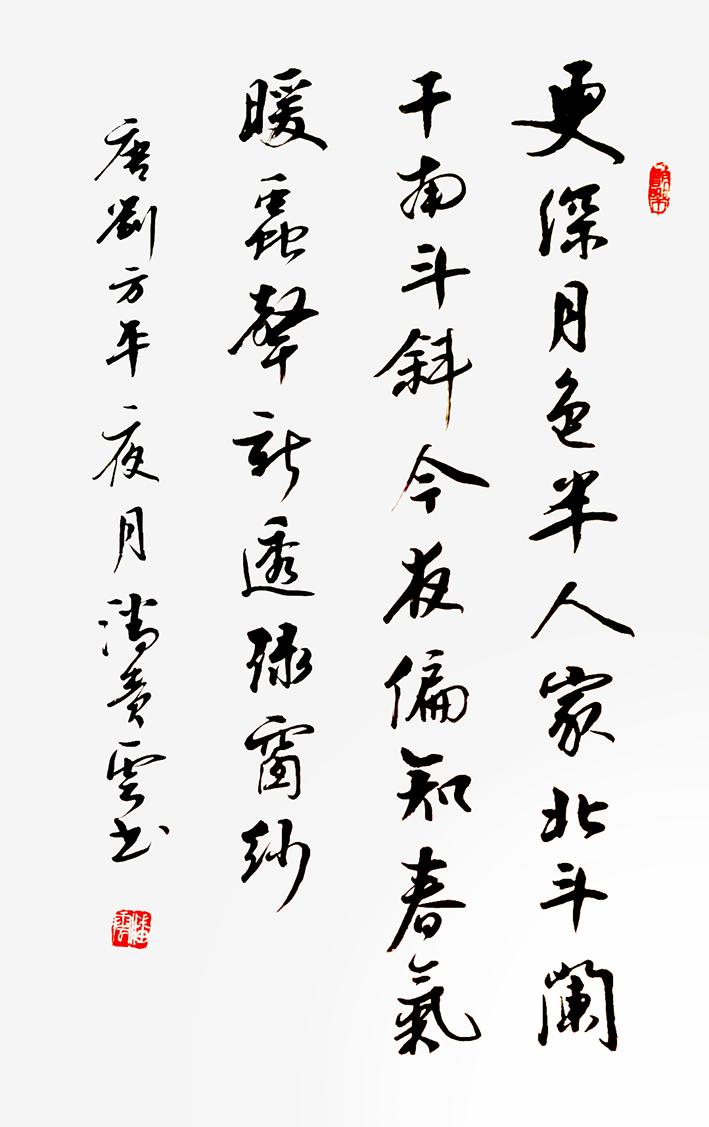 更深月色半人家北斗闌
干南斗斜今夜偏知春氣
暖蟲聲新透綠窗紗
唐劉方平夜月潘雲書